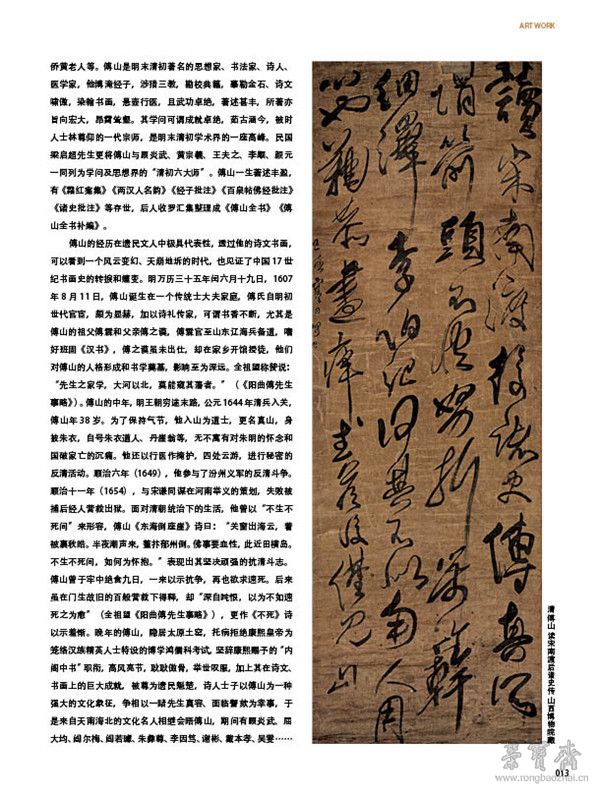 ART WORK
侨黄老人等。傅山是明末清初著名的思想家、书法家、诗人、
医学家，他博淹经子，涉猎三教，勘校典籍，摹勒金石、诗文
啸傲，染翰书画，悬壶行医，且武功卓绝，著述甚丰，所著亦
旨向宏大，昂霄耸壑。其学问可谓成就卓绝，茹古涵今，被时
人士林尊仰的一代宗师，是明末清初学术界的一座高峰。民国
梁启超先生更将傅山与顾炎武、黄宗羲、王夫之、李颙、颜元
一同列为学问及思想界的“清初六大师”。傅山一生著述丰盈，
有《霜红龛集》《两汉人名韵》《经子批注》《百泉帖佛经批注》
《诸史批注》等存世，后人收罗汇集整理成《傅山全书》《傅
山全书补编》。
傅山的经历在遗民文人中极具代表性，透过他的诗文书画，
可以看到一个风云变幻、天崩地坼的时代，也见证了中国 17 世
纪书画史的转捩和嬗变。明万历三十五年闰六月十九日，1607
年 8 月 11 日，傅山诞生在一个传统士大夫家庭，傅氏自明初
世代官宦，颇为显赫，加以诗礼传家，可谓书香不断，尤其是
傅山的祖父傅霖和父亲傅之谟，傅霖官至山东辽海兵备道，嗜
好班固《汉书》，傅之谟虽未出仕，却在家乡开馆授徒，他们
对傅山的人格形成和书学奠基，影响至为深远。全祖望称赞说：
“先生之家学，大河以北，莫能窥其藩者。”（《阳曲傅先生
事略》）。傅山的中年，明王朝穷途末路，公元 1644 年清兵入关，
傅山年 38 岁。为了保持气节，他入山为道士，更名真山，身
披朱衣，自号朱衣道人、丹崖翁等，无不寓有对朱明的怀念和
国破家亡的沉痛。他还以行医作掩护，四处云游，进行秘密的
反清活动。顺治六年（1649），他参与了汾州义军的反清斗争。
顺治十一年（1654），与宋谦同谋在河南举义的策划，失败被
捕后经人营救出狱。面对清朝统治下的生活，他曾以“不生不
死间”来形容，傅山《东海倒座崖》诗曰：“关窗出海云，着
被裹秋皓。半夜潮声来，鳌抃郁州倒。佛事要血性，此近田横岛。
不生不死间，如何为怀抱。”表现出其坚决顽强的抗清斗志。
傅山曾于牢中绝食九日，一来以示抗争，再也欲求速死。后来
虽在门生故旧的百般营救下得释，却“深自咤恨，以为不如速
死之为愈”（全祖望《阳曲傅先生事略》），更作《不死》诗
以示羞惭。晚年的傅山，隐居太原土窑，托病拒绝康熙皇帝为
笼络汉族精英人士特设的博学鸿儒科考试，坚辞康熙赐予的“内
阁中书”职衔，高风亮节，耿耿傲骨，举世叹服，加上其在诗文、
书画上的巨大成就，被尊为遗民魁楚，诗人士子以傅山为一种
强大的文化象征，争相以一睹先生真容、面临謦欬为幸事，于
是来自天南海北的文化名人相继会晤傅山，期间有顾炎武、屈
大均、阎尔梅、阎若璩、朱彝尊、李因笃、谢彬、戴本孝、吴雯……
讀宋南渡後諸史傳真
箭頭不快努折
細繹李伯紀何其不似
用人
清 傅山 读宋南渡后诸史传 山西博物院藏
荣宝斋
www.rongbaozhai.cn
013